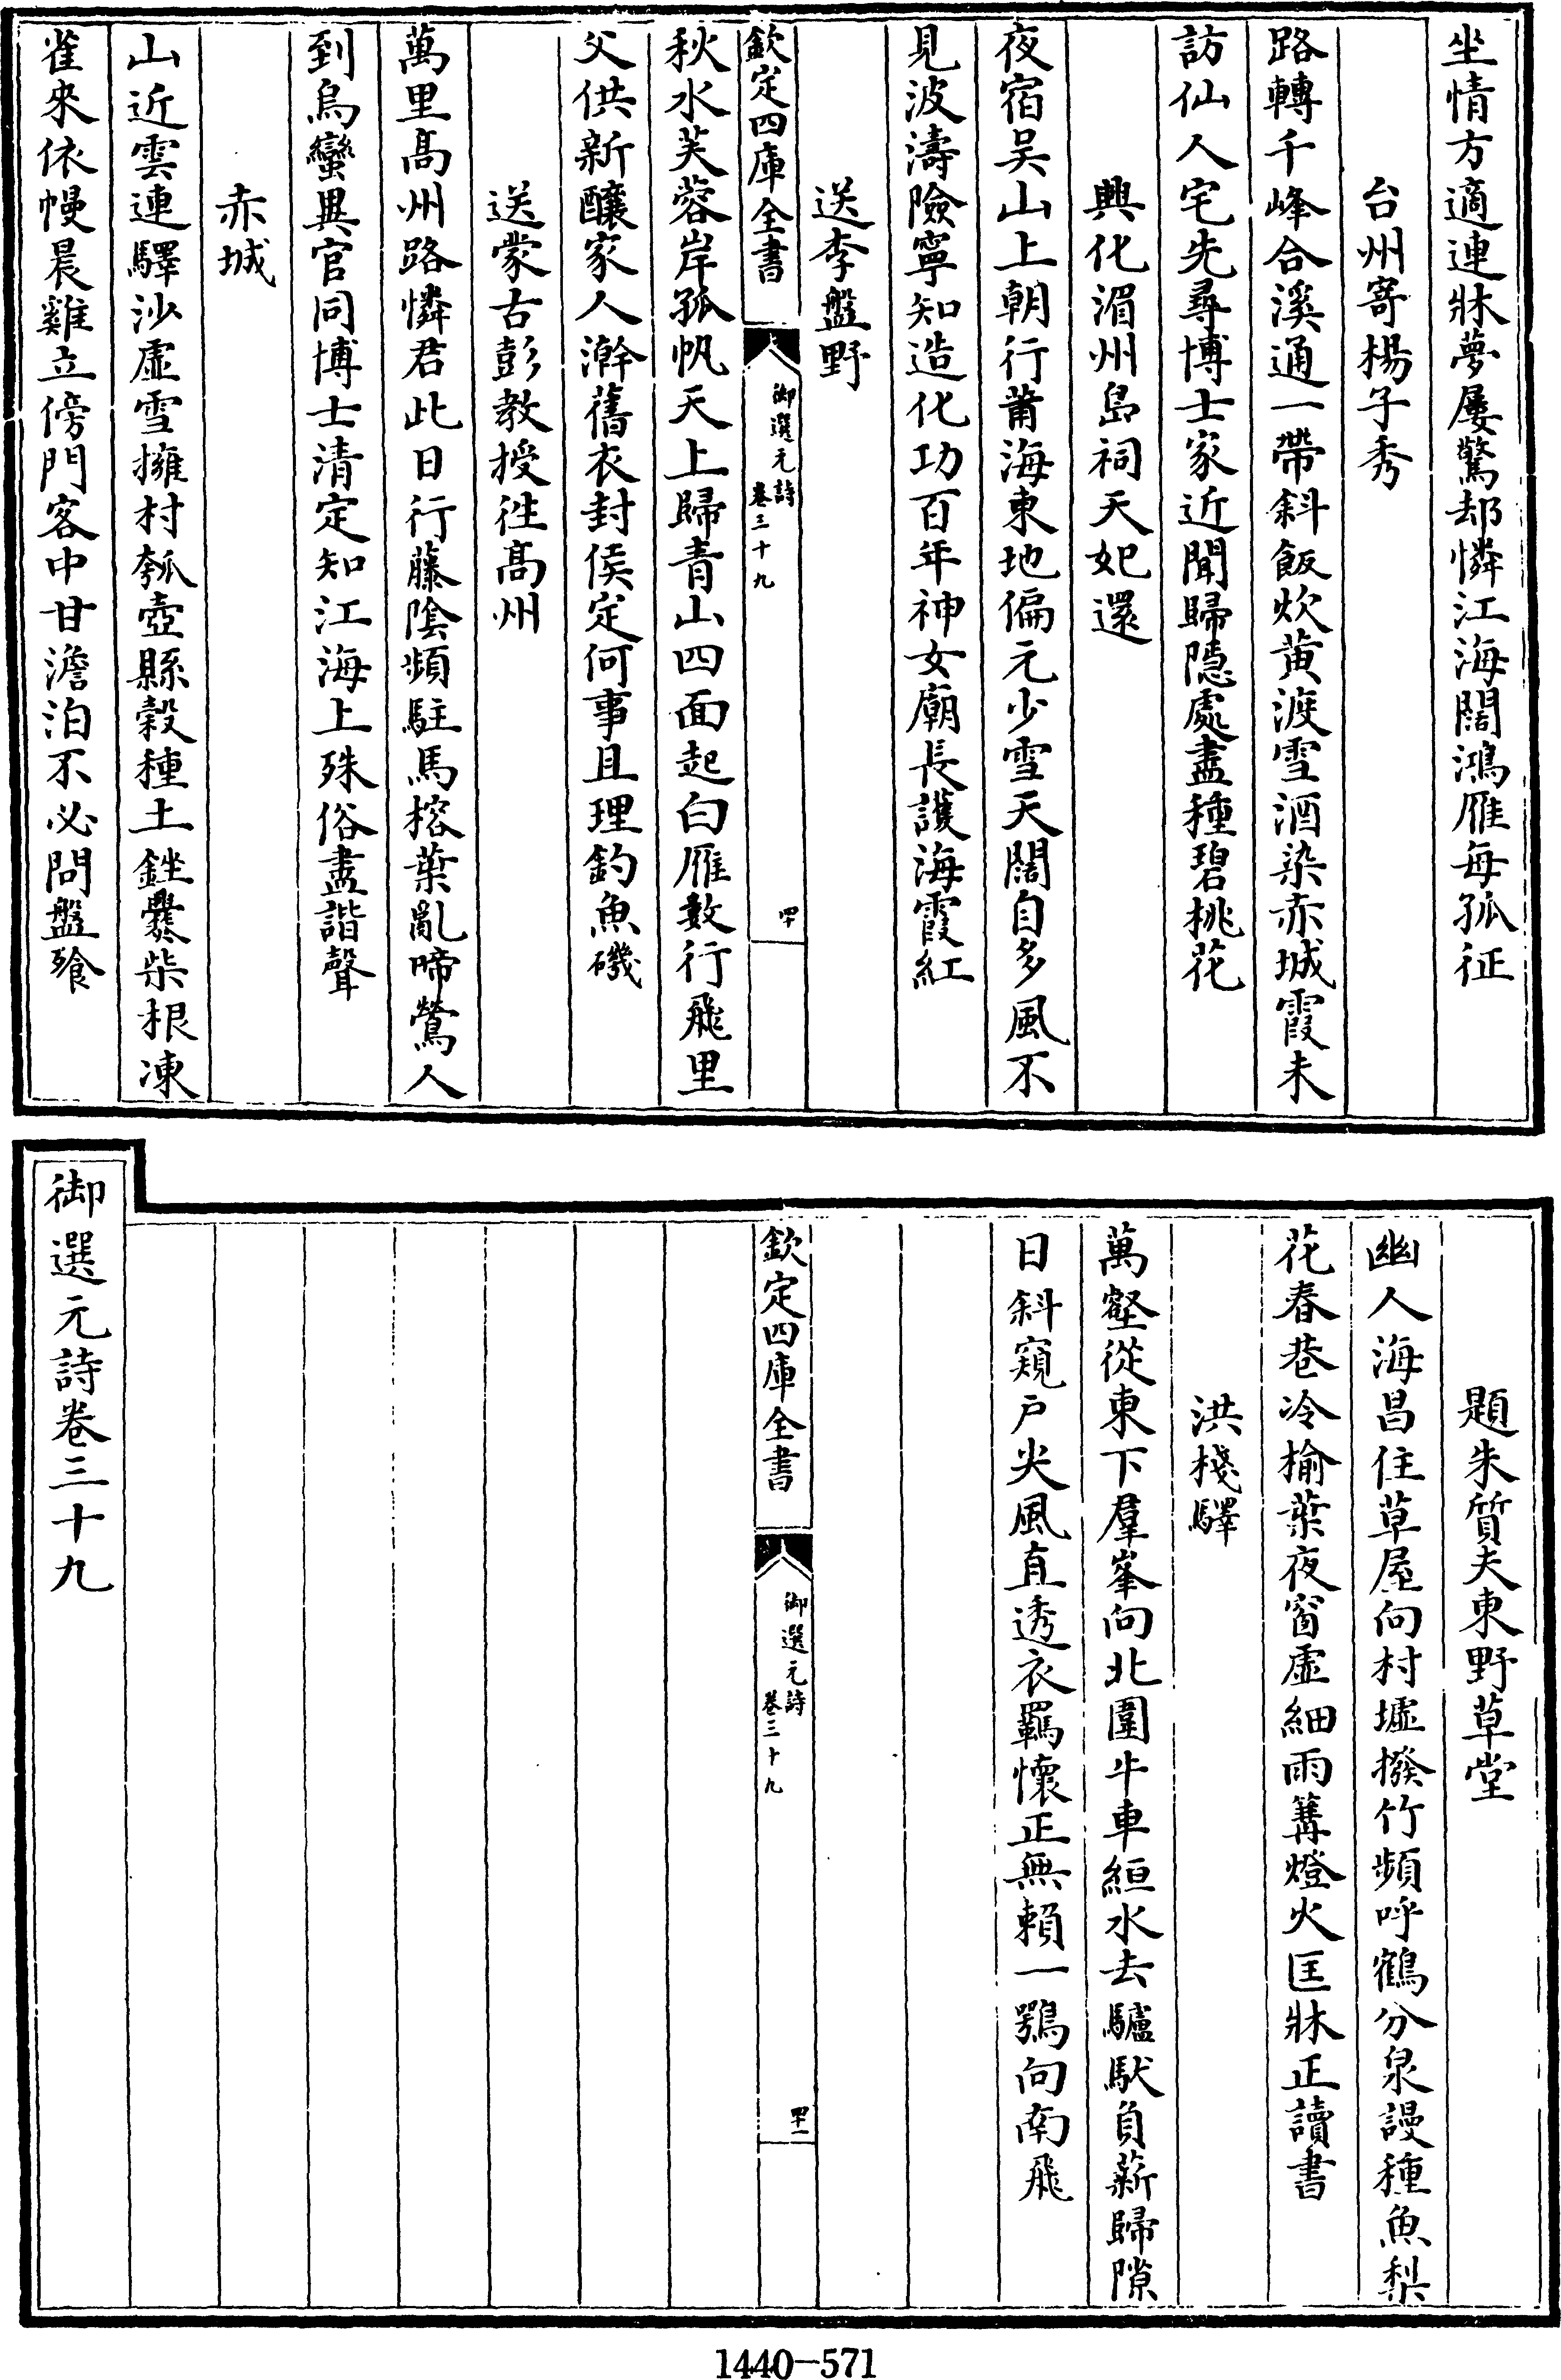 坐情方適連牀夢屢驚却憐江海闊鴻雁每孤征
台州寄楊子秀
路轉千峰合溪通一帶斜飯炊黄渡雪酒染赤城霞未
訪仙人宅先尋博士家近聞歸隱處盡種碧桃花
興化湄州島祠天妃還
夜宿吴山上朝行莆海東地偏元少雪天闊自多風不
見波濤險寧知造化功百年神女廟長護海霞紅
送李盤野
欽定四庫全書
御選元詩
卷三十九
四十
秋水芙蓉岸孤帆天上歸青山四面起白雁數行飛里
父供新釀家人澣舊衣封侯定何事且理釣魚磯
送蒙古彭教授徃髙州
萬里髙州路憐君此日行藤陰頻駐馬榕葉亂啼鶯人
到烏蠻異官同博士清定知江海上殊俗盡諧聲
赤城
山近雲連驛沙虚雪擁村瓠壺縣榖種土銼爨柴根凍
雀來依幔晨雞立傍門客中甘澹泊不必問盤飱
題朱質夫東野草堂
幽人海昌住草屋向村墟撥竹頻呼鶴分泉謾種魚梨
花春巷冷榆葉夜窗虚細雨篝燈火匡牀正讀書
洪棧驛
萬壑從東下羣峯向北圍牛車絙水去驢馱負薪歸隙
日斜窺户尖風直透衣羈懷正無賴一鶚向南飛
欽定四庫全書
御選元詩
卷三十九
四十一
御選元詩卷三十九
1440-571